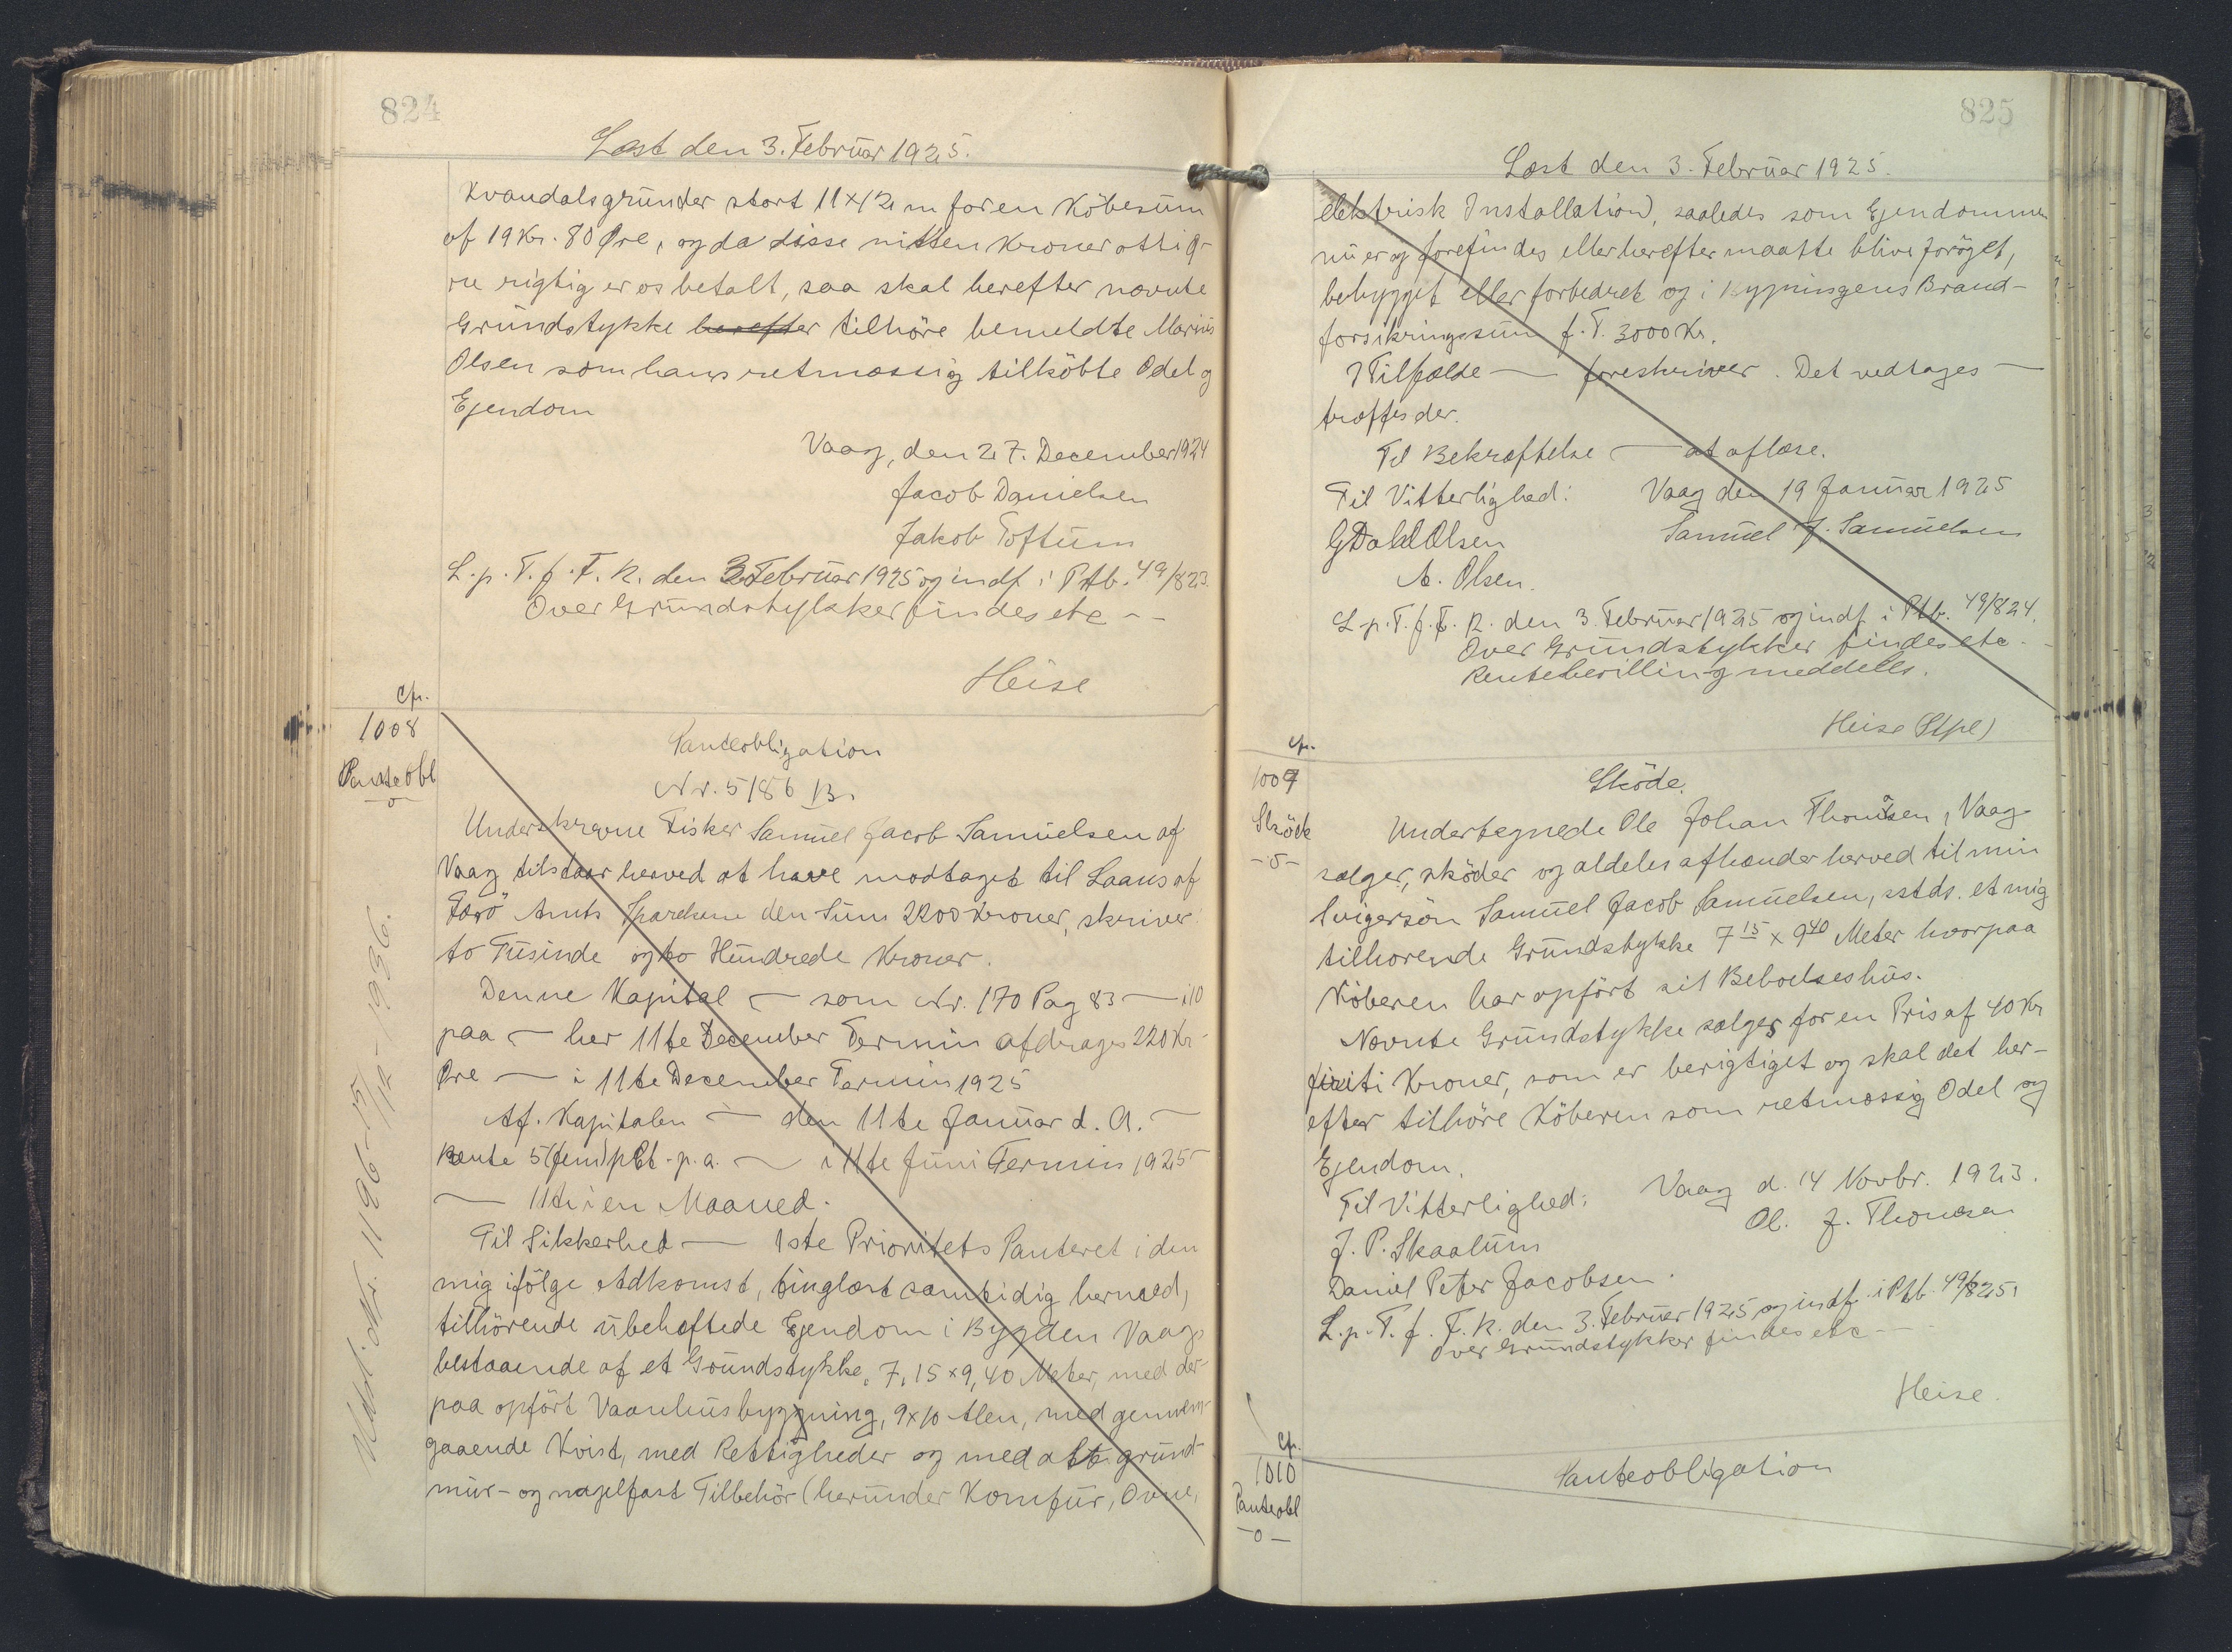 824
Læst den 3. Februar 1925.
Kvandalsgrunder stort 11×12 m for en Köbesum
af 19 Kr. 80 Øre, og da disse nitten Kroner otti Ø-
re rigtig er os betalt, saa skal herefter nævnte
Grundstykke herefter tilhöre bemeldte Marius
Olsen som hans retmæssig tilköbte Odel og
Ejendom
Vaag, den 27. December 1924
Jacob Danielsen
Jakob Toftum
L. p. T. f. F. R. den 3 Februar 1925 og indf i Ptb. 49/823.
Over Grundstykker findes etc - -
Heise
cfr.
1008
Panteobl
-o-
Panteobligation
Nr. 5186 B.
Underskrevne Fisker Samuel Jacob Samuelsen af
Vaag tilstaar herved at have modtaget til Laans af
Færö Amts Sparekasse den Sum 2200 Kroner, skriver
to Tusinde og to Hundrede Kroner.
Denne Kapital — som Nr. 170 Pag 83 — i 10
paa — hver 11te December Termin afdrages 220 Kr -
Øre — i 11te December Termin 1925
Af Kapitalen — den 11te Januar d. A. —
Rente 5 (fem) pCt. p. a. — i 11te Juni Termin 1925
— 11te i en Maaned.
Til Sikkerhed — 1ste Prioritets Panteret i den
mig ifölge Adkomst, tinglæst samtidig hermed,
tilhörende übehæftede Ejendom i Bygden Vaag,
bestaaende af et Grundstykke, 7,15×9,40 Meter, med der-
paa opfört Vaanhusbygning, 9×10 Alen, med gennem-
gaaende Kvist, med Rettigheder og med alt grund-
mur- og nagelfast Tilbehör (herunder Komfur, Ovne,
Udsl. Nr. 1196 - 15/12 - 1936.
825
Læst den 3. Februar 1925.
elektrisk Installation), saaledes som Ejendommen
nu er og forefindes eller herefter maatte blive foröget,
bebygget eller forbedret og i Bygningens Brand-
forsikringssum f. T. 3000 Kr.
I Tilfælde — foreskriver. Det vedtages —
træffes der.
Til Bekræftelse — at aflæse.
Til Vitterlighed: Vaag den 19 Januar 1925
G Dahl Olsen Samuel J. Samuelsen
A. Olsen.
L. p. T. f. F. R. den 3. Februar 1925 og indf i Ptb. 49/824.
Over Grundstykker findes etc. -
Rentebevilling meddeles.
Heise (Stpl)
cfr.
1009
Sköde
-o-
Sköde.
Undertegnede Ole Johan Thomsen, Vaag
sælger, sköder og aldeles afhænder herved til min
Svigersön Samuel Jacob Samuelsen, sstds. et mig
tilhorende Grundstykke 7 15 × 9 40 Meter hvorpaa
Köberen har opfört sit Beboelseshus.
Nævnte Grundstykke sælges for en Pris af 40 Kr
firti Kroner, som er berigtiget og skal det her-
efter tilhöre Köberen som retmæssig Odel og
Ejendom.
Til Vitterlighed: Vaag d. 14 Novbr. 1923.
J. P. Skaalum Ol. J. Thomsen
Daniel Peter Jacobsen.
L. p. T. f. F. R. den 3. Februar 1925 og indf. i Ptb. 49/825.
Over Grundstykker findes etc -
Heise.
cfr.
1010
Panteobl
-o-
Panteobligation